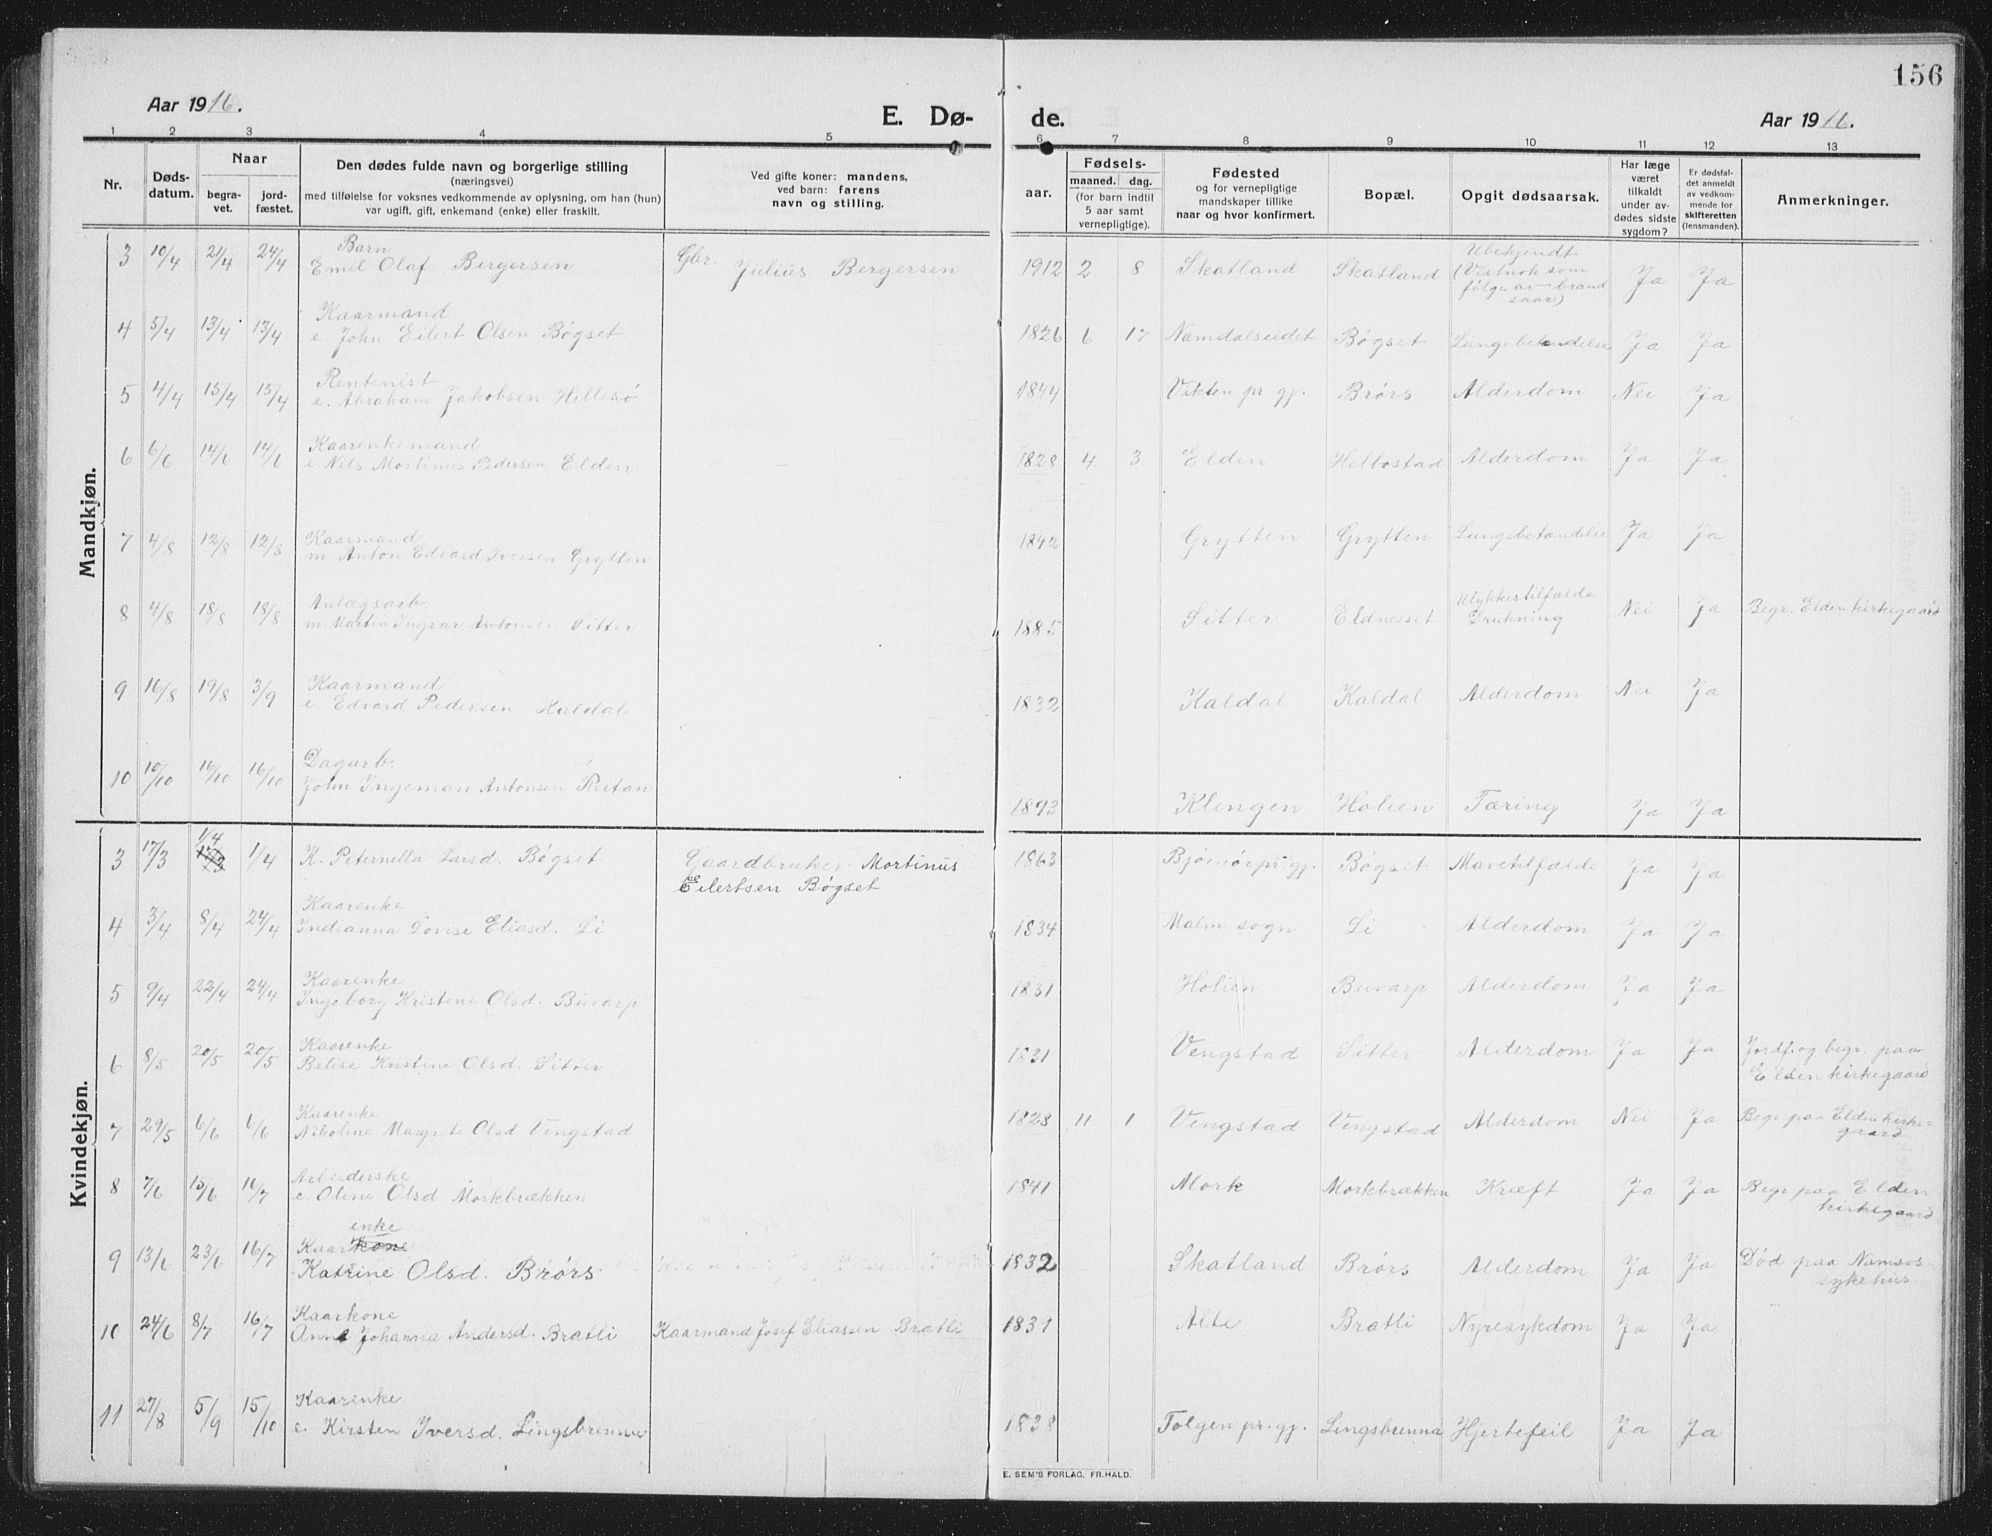 156
Aar 1916.
E. Dø-
de.
Aar 1916.
1 2 3 4 5 6 7 8 9 10 11 12 13
Nr.
Døds-
datum.
Naar
begra-
vet.
jord-
fæstet.
Den dødes fulde navn og borgerlige stilling
(næringsvei)
med tilføielse for voksnes vedkommende av oplysning, om han (hun)
var ugift, gift, enkemand (enke) eller fraskilt.
Ved gifte koner: mandens,
ved barn: farens
navn og stilling.
Fødsels-
aar.
maaned. dag.
(for barn indtil
5 aar samt
vernepligtige).
Fødested
og for vernepligtige
mandskaper tillike
naar og hvor konfirmert.
Bopæl.
Opgit dødsaarsak.
Har læge
været
tilkaldt
under av-
dødes sidste
sygdom?
Er dødsfal-
det anmeldt
av vedkom-
mende for
skifteretten
(lensmanden).
Anmerkninger.
Mandkjøn.
Barn
3 10/4 21/4 24/4 Emil Olaf Bergersen Gbr. Julius Bergersen 1912 2 8 Skatland Skatland Ubekjendt Ja Ja
(Vistnok som
følge av brand
saar)
Kaarmand
4 5/4 13/4 13/4 e John Eilert Olsen Bøgset 1826 6 17 Namdalseidet Bøgset Lungebetændelse Ja Ja
Rentenist
5 4/4 15/4 15/4 e. Abraham Jakobsen Hillesø 1844 Vikten pr. gj. Brørs Alderdom Nei Ja
Kaarenkemand
6 6/6 14/6 14/6 e. Nils Mortinus Pedersen Elden 1828 4 3 Elden Hellostad Alderdom Ja Ja
Kaarmand
7 4/8 12/8 12/8 m Anton Edvard Iversen Grytten 1842 Grytten Grytten Lungebetændelse Ja Ja
Anlægsarb.
8 4/8 18/8 18/8 m Martin Ingvar Antonsen Sitter 1885 Sitter Eldnesset Ulykkestilfælde Nei Ja Begr. Elden kirkegaard
Drukning
Kaarmand
9 16/8 19/8 3/9 e Edvard Pedersen Kaldal 1832 Kaldal Kaldal Alderdom Nei Ja
Dagarb.
10 10/10 16/10 16/10 John Ingeman Antonsen Reitan 1893 Klingen Holien Tæring Ja Ja
Kvindekjøn.
1/4
3 17/3 1/4 K. Peternella Larsd. Bøgset Gaardbruker Mortinus 1863 Bjørnør pr. gj. Bøgset Mavetilfælde Ja Ja
Eilertsen Bøgset
Kaarenke
4 3/4 8/4 24/4 Indianna Lovise Eliasd. Li 1834 Malm sogn Li Alderdom Ja Ja
Kaarenke
5 9/4 22/4 24/4 Ingeborg Kristine Olsd. Buvarp 1831 Holien Buvarp Alderdom Ja Ja
Kaarenke
6 8/5 20/5 20/5 Belise Kristine Olsd. Sitter 1831 Vengstad Sitter Alderdom Ja Ja Jordf. og begr. paa
Elden kirkegaard
Kaarenke
7 29/5 6/6 6/6 Nikoline Margrete Olsd Vengstad 1828 11 1 Vengstad Vengstad Alderdom Nei Ja Begr paa Elden kirke-
gaard
Arbeiderske
8 7/6 15/6 16/7 e. Oline Olsd Morkbrækken 1841 Mork Morkbrækken Kræft Ja Ja Begr paa Elden
kirkegaard
enke
Kaarkone
9 13/6 23/6 16/7 Katrine Olsd. Brørs 1832 Skatland Brørs Alderdom Ja Ja Død paa Namsos
sykehus
Kaarkone
10 24/6 8/7 16/7 Anne Johanna Andersd. Bratli Kaarmand Josef Eliassen Bratli 1831 Alte Bratli Nyresykdom Ja Ja
Kaarenke
11 27/8 5/9 15/10 e. Kirsten Iversd. Lingsbrenna 1838 Tolgen pr. gj. Lingsbrenna Hjertefeil Ja Ja
E. SEM'S FORLAG, FR.HALD.